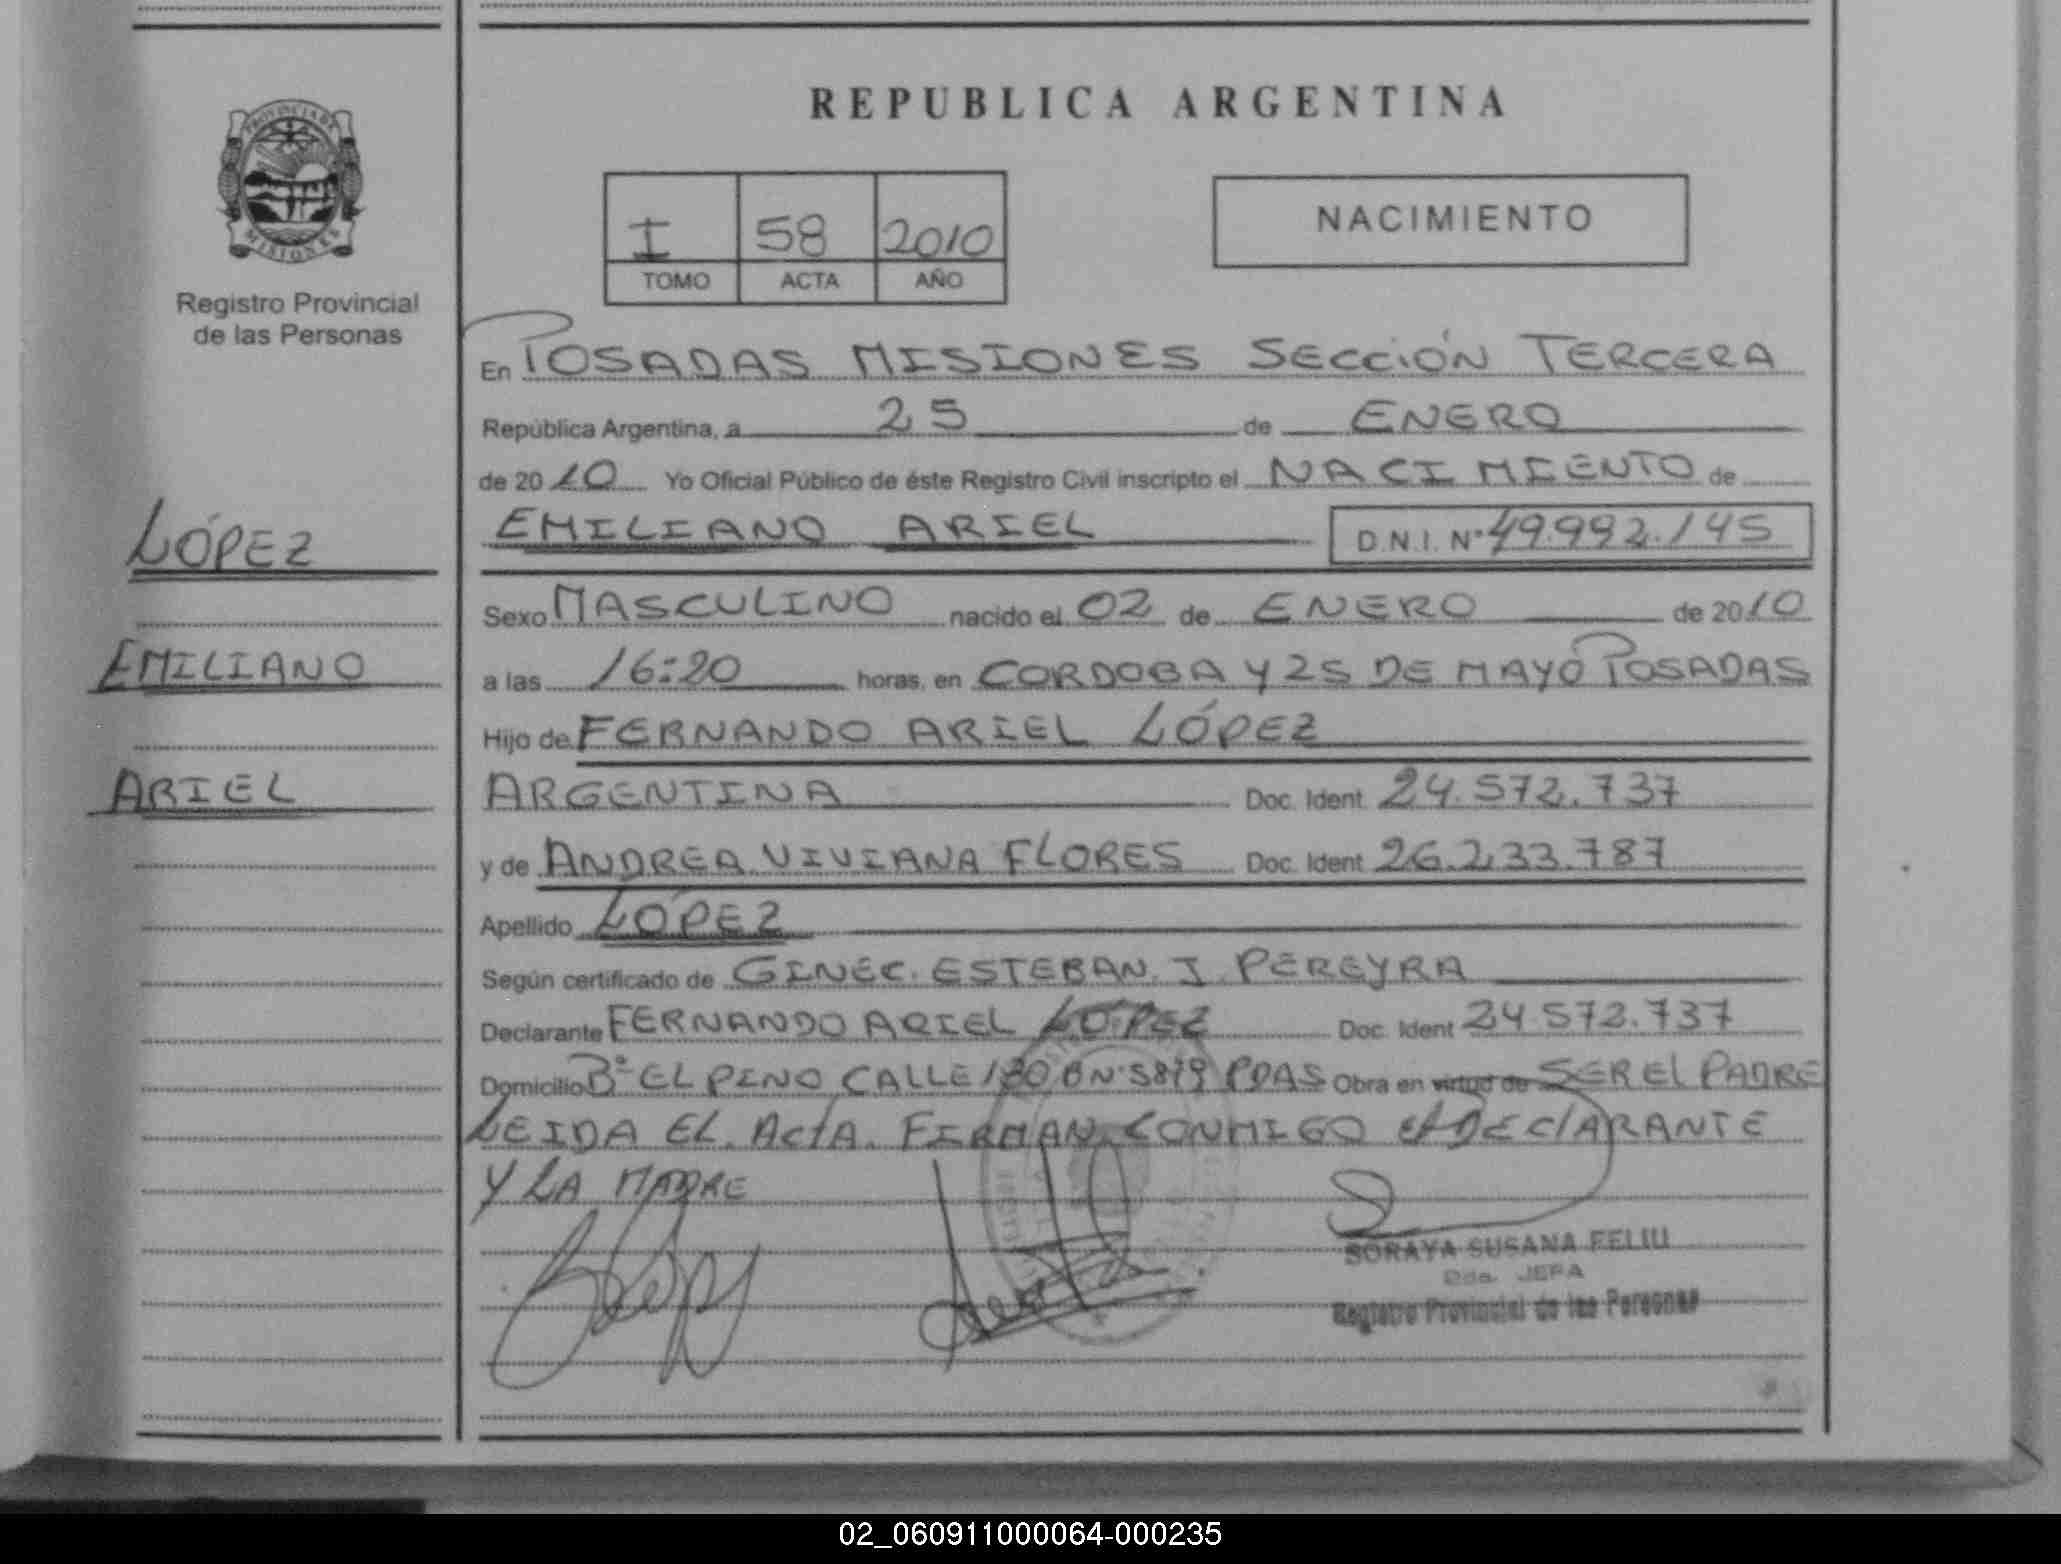 PROVINCIA DE
MISIONES
Registro Provincial
de las Personas
LÓPEZ
EMILIANO
ARIEL
REPUBLICA ARGENTINA
I 58 2010
TOMO ACTA AÑO
NACIMIENTO
En POSADAS MISIONES SECCIÓN TERCERA
República Argentina, a 25 de ENERO
de 2010 Yo Oficial Público de éste Registro Civil inscripto el NACIMIENTO de
EMILIANO ARIEL D.N.I. Nº 49.992.145
Sexo MASCULINO nacido el 02 de ENERO de 2010
a las 16:20 horas, en CORDOBA Y 25 DE MAYO POSADAS
Hijo de FERNANDO ARIEL LÓPEZ
ARGENTINA Doc. Ident 24.572.737
y de ANDREA VIVIANA FLORES Doc. Ident 26.233.787
Apellido LÓPEZ
Según certificado de GINEC. ESTEBAN. J. PEREYRA
Declarante FERNANDO ARIEL LÓPEZ Doc. Ident 24.572.737
Domicilio Bº EL PINO CALLE PDAS Obra en virtud de SER EL PADRE
LEIDA EL ACTA. FIRMAN CONMIGO EL DECLARANTE
Y LA MADRE
SORAYA SUSANA FELIU
JEFA
Registro Provincial de las Personas
02_060911000064-000235